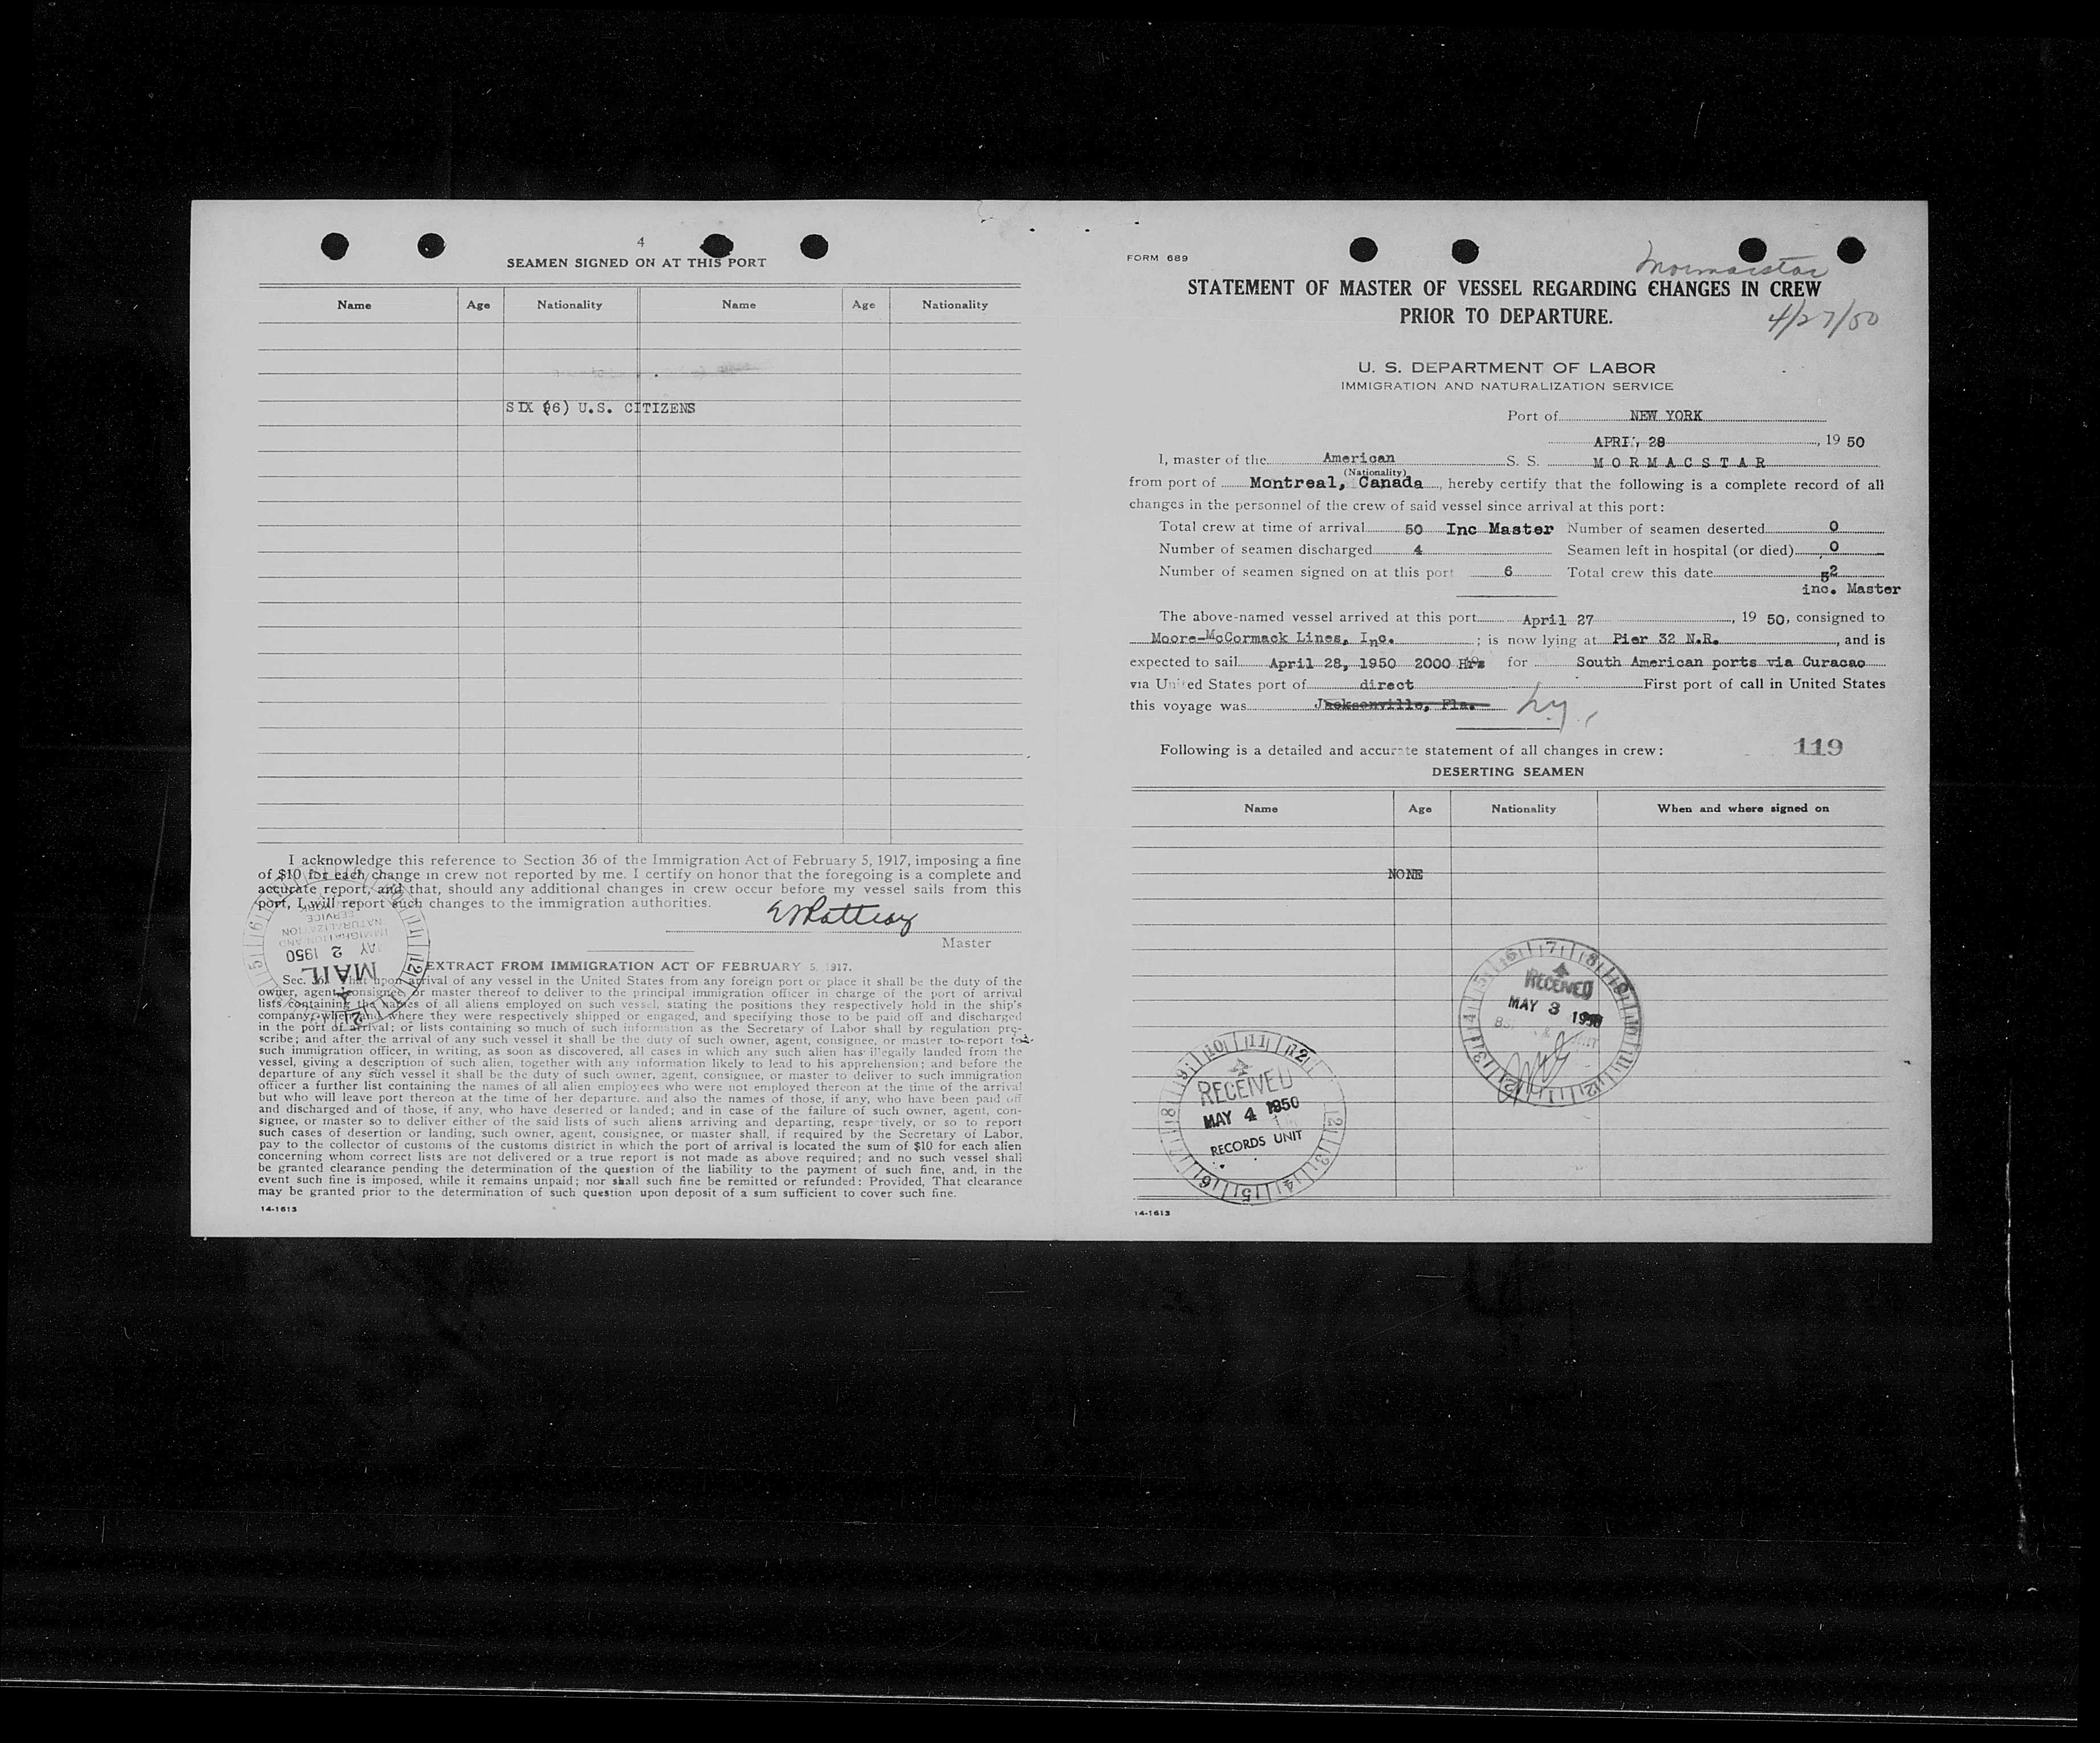 4
SEAMEN SIGNED ON AT THIS PORT
Name Age Nationality Name Age Nationality
SIX (6) U.S. CITIZENS
I acknowledge this reference to Section 36 of the Immigration Act of February 5, 1917, imposing a fine
of $10 for each change in crew not reported by me. I certify on honor that the foregoing is a complete and
accurate report, and that, should any additional changes in crew occur before my vessel sails from this
port, I will report such changes to the immigration authorities.
Master
IMMIGRATION AND
NATURALIZATION
SERVICE
MAY 2 1950
MAIL
EXTRACT FROM IMMIGRATION ACT OF FEBRUARY 5, 1917.
Sec. 36. That upon arrival of any vessel in the United States from any foreign port or place it shall be the duty of the
owner, agent, consignee, or master thereof to deliver to the principal immigration officer in charge of the port of arrival
lists containing the names of all aliens employed on such vessel, stating the positions they respectively hold in the ship's
company, when and where they were respectively shipped or engaged, and specifying those to be paid off and discharged
in the port of arrival; or lists containing so much of such information as the Secretary of Labor shall by regulation pre-
scribe; and after the arrival of any such vessel it shall be the duty of such owner, agent, consignee, or master to report to
such immigration officer, in writing, as soon as discovered, all cases in which any such alien has illegally landed from the
vessel, giving a description of such alien, together with any information likely to lead to his apprehension; and before the
departure of any such vessel it shall be the duty of such owner, agent, consignee, or master to deliver to such immigration
officer a further list containing the names of all alien employees who were not employed thereon at the time of the arrival
but who will leave port thereon at the time of her departure, and also the names of those, if any, who have been paid off
and discharged and of those, if any, who have deserted or landed; and in case of the failure of such owner, agent, con-
signee, or master so to deliver either of the said lists of such aliens arriving and departing, respectively, or so to report
such cases of desertion or landing, such owner, agent, consignee, or master shall, if required by the Secretary of Labor,
pay to the collector of customs of the customs district in which the port of arrival is located the sum of $10 for each alien
concerning whom correct lists are not delivered or a true report is not made as above required; and no such vessel shall
be granted clearance pending the determination of the question of the liability to the payment of such fine, and, in the
event such fine is imposed, while it remains unpaid; nor shall such fine be remitted or refunded: Provided, That clearance
may be granted prior to the determination of such question upon deposit of a sum sufficient to cover such fine.
14-1613
FORM 689
Mormacstar
STATEMENT OF MASTER OF VESSEL REGARDING CHANGES IN CREW
PRIOR TO DEPARTURE.
4/27/50
U. S. DEPARTMENT OF LABOR
IMMIGRATION AND NATURALIZATION SERVICE
Port of NEW YORK
APRIL 28, 1950
I, master of the American S. S. MORMACSTAR
(Nationality)
from port of Montreal, Canada, hereby certify that the following is a complete record of all
changes in the personnel of the crew of said vessel since arrival at this port:
Total crew at time of arrival 50 Inc Master Number of seamen deserted 0
Number of seamen discharged 4 Seamen left in hospital (or died) 0
Number of seamen signed on at this port 6 Total crew this date 52
inc. Master
The above-named vessel arrived at this port April 27, 1950, consigned to
Moore-McCormack Lines, Inc.; is now lying at Pier 32 N.R., and is
expected to sail April 28, 1950 2000 Hrs for South American ports via Curacao
via United States port of direct First port of call in United States
this voyage was Jacksonville, Fla. N.Y.
Following is a detailed and accurate statement of all changes in crew: 119
DESERTING SEAMEN
Name Age Nationality When and where signed on
NONE
RECEIVED
MAY 3 1950
RECEIVED
MAY 4 1950
RECORDS UNIT
14-1613